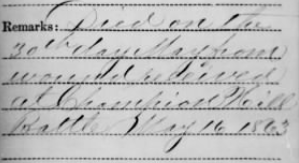 Remarks: Died on the
30th day May from
wound received
at Champion Hill
Battle May 16 1863